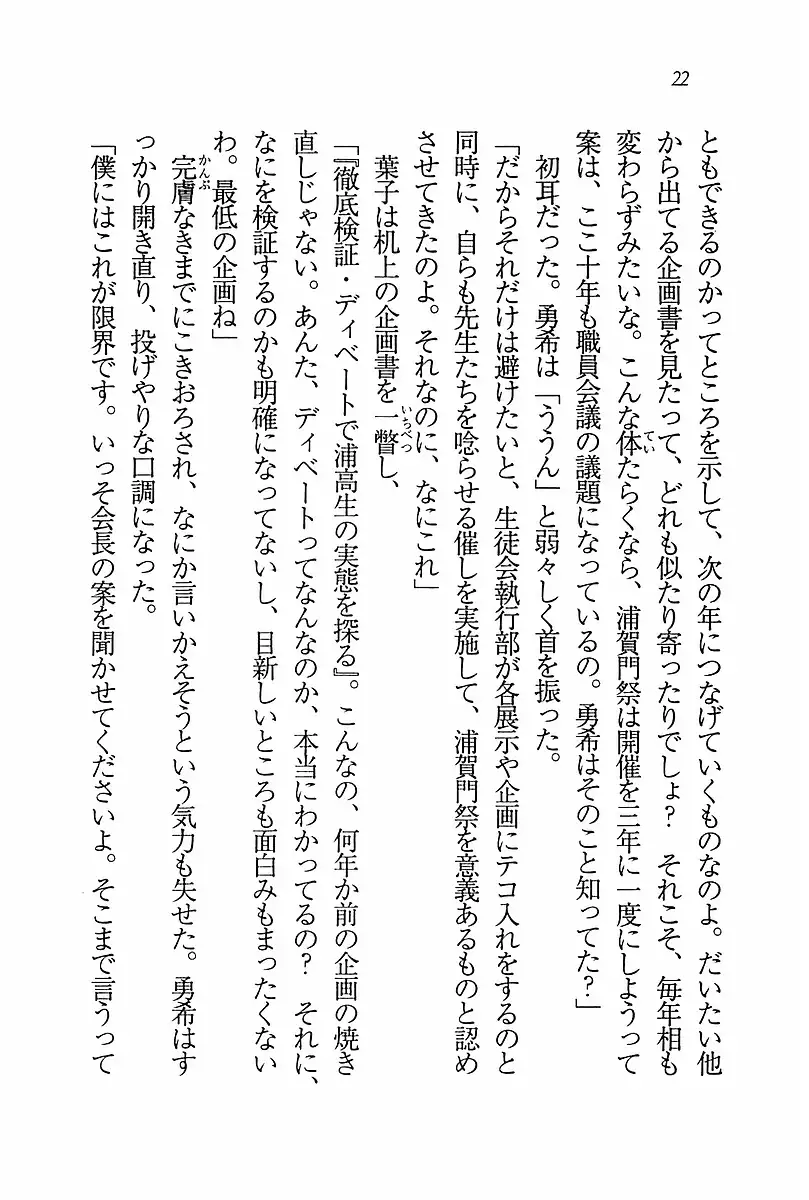 22
ともできるのかってところを示して、次の年につなげていくものなのよ。だいたい他
から出てる企画書を見たって、どれも似たり寄ったりでしょ？　それこそ、毎年相も
変わらずみたいな。こんな体たらくなら、浦賀門祭は開催を三年に一度にしようって
てい
案は、ここ十年も職員会議の議題になっているの。勇希はそのこと知ってた？」
　初耳だった。勇希は「ううん」と弱々しく首を振った。
「だからそれだけは避けたいと、生徒会執行部が各展示や企画にテコ入れをするのと
同時に、自らも先生たちを唸らせる催しを実施して、浦賀門祭を意義あるものと認め
させてきたのよ。それなのに、なにこれ」
　葉子は机上の企画書を一瞥し、
いちべつ
「『徹底検証・ディベートで浦高生の実態を探る』。こんなの、何年か前の企画の焼き
直しじゃない。あんた、ディベートってなんなのか、本当にわかってるの？　それに、
なにを検証するのかも明確になってないし、目新しいところも面白みもまったくない
わ。最低の企画ね」
　完膚なきまでにこきおろされ、なにか言いかえそうという気力も失せた。勇希はす
かんぷ
っかり開き直り、投げやりな口調になった。
「僕にはこれが限界です。いっそ会長の案を聞かせてくださいよ。そこまで言うって